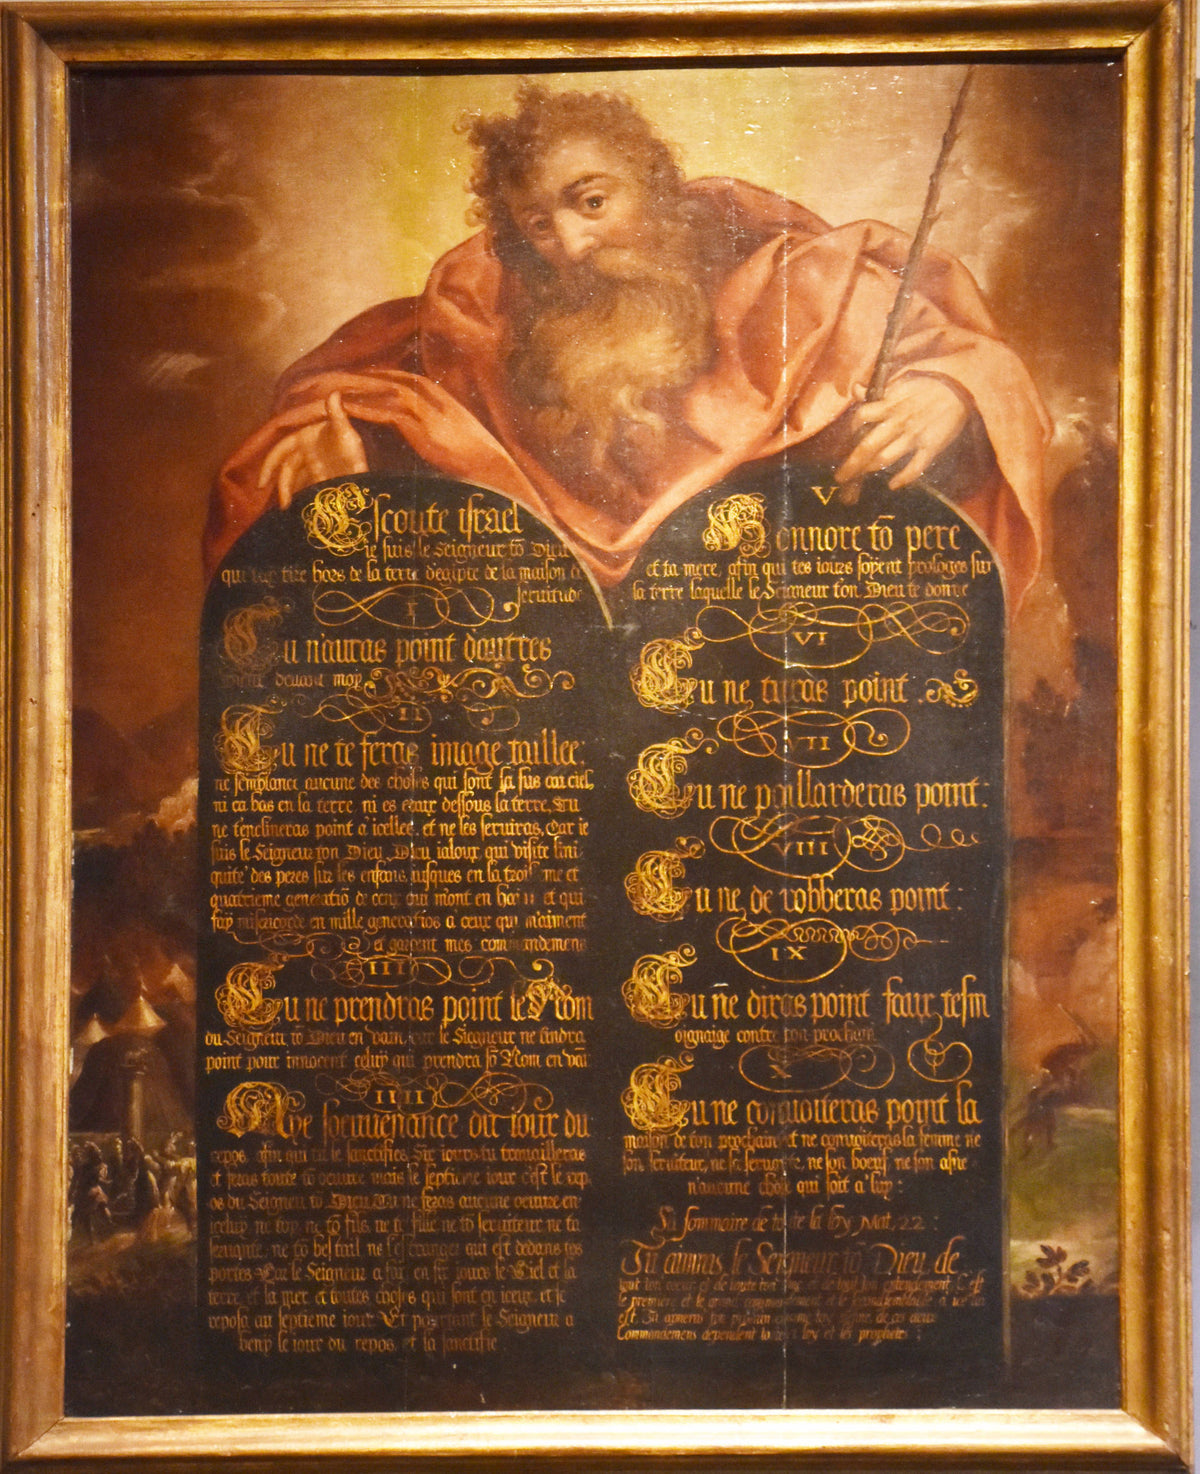 Escoute israel
ie suis le Seigneur tõ Dieu
qui tay tire hors de la terre d'egipte de la maison de
servitude
I
Tu n'auras point dautres
dieux devant moy
II
Tu ne te feras image taillee:
ne semblance aucune des choses qui sont la sus au ciel,
ni ca bas en la terre, ni es eaux dessous la terre, Tu
ne t'enclineras point a icelles, et ne les serviras, Car ie
suis le Seigneur ton Dieu, Dieu ialoux qui visite lini
quite des peres sur les enfans iusques en la trois me et
quatrieme generatiõ de ceux qui m'ont en et qui
fay misericorde en mille generatiõs a ceux qui m'aiment
et gardent mes commandemens
III
Tu ne prendras point le Nom
du Seigneur tõ Dieu en vain, car le Siegneur ne tiendra
point pour innocent celuy qui prendra sõ Nom en vaï
IIII
Aye souvenance du iour du
repos, afin qui tu le sanctifies, Six iours tu travailleras
et feras toute tõ oeuvre mais le septieme iour c'est le rep,
os du Seigneur tõ Dieu Tu ne feras aucune oeuvre en
iceluy, ne toy, ne tõ fils, ne ta fille ne tõ serviteur ne ta
servante, ne tõ bestail ne l'estranger qui est dedans tes
portes Car le Seigneur a fay en six iours le Ciel et la
terre, et la mer et toutes choses qui sont en iceux, et se
reposa au septieme iour Et pourtant le Seigneur a
beny le iour du repos, et la sanctifie:
V
Honnore tõ pere
et ta mere, afin qui tes iours soyent prologes sur
la terre laquelle le Seigneur ton Dieu te donne
VI
Tu ne tueras point.
VII
Tu ne paillarderas point:
VIII
Tu ne de robberas point:
IX
Tu ne diras point faux tesm
oignaige contre ton prochain
X
Tu ne convoiteras point la
maison de ton prochain et ne convoiteras la femme ne
son serviteur, ne sa servante, ne son boeuf, ne son asne
n'aucune chose qui soit a luy:
Le sommaire de toute la loy, Mat, 22:
Tu aimras le Seigneur tõ Dieu de
tout ton coeur et de toute ton ame et de tout ton entendement C'est
le premiere et le grand commandement et le second semblable a
est. Tu aimeras ton prochain comme toy mesme, de ces deux
Commandemens dependent toute la loy et les prophetes: